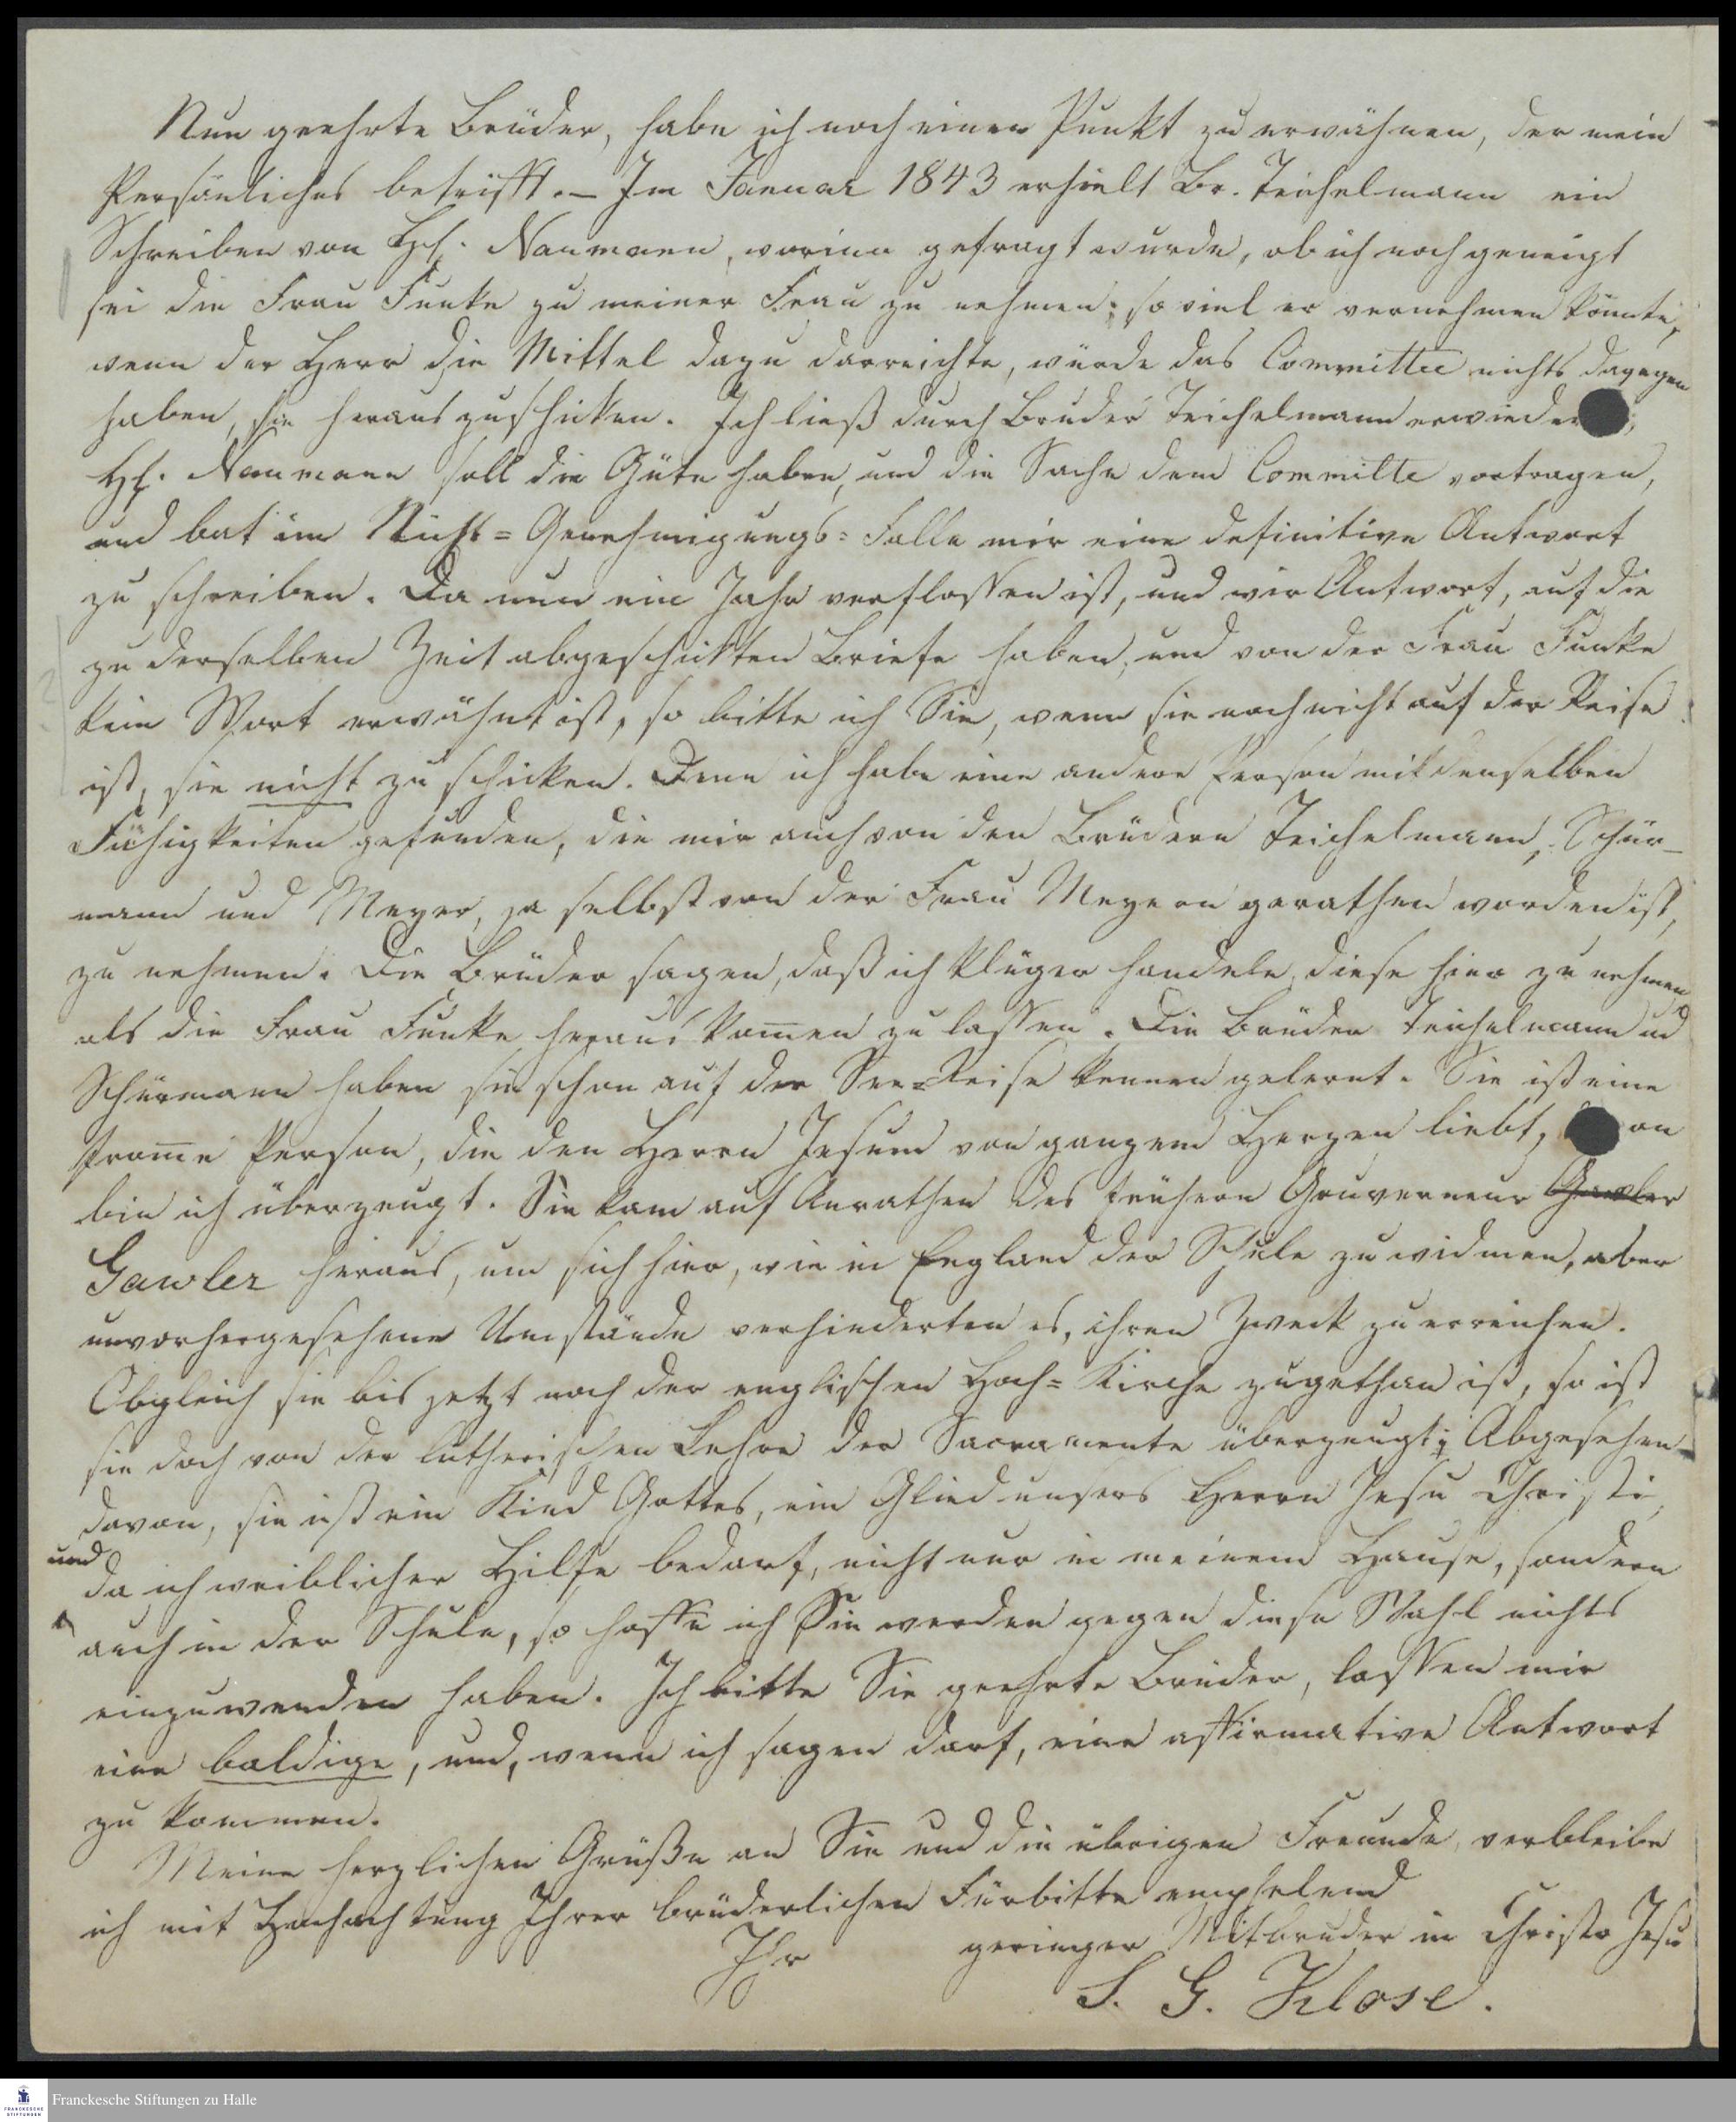 Nun geehrte Brüder, habe ich noch einen Punkt zu erwähnen, der mein
Persönliches betrifft. – Im Januar 1843 erhielt Br. Teichelmann ein
Schreiben von H. Naumann, worinn gefragt wurde, ob ich noch geneigt
sei die Frau Funke zu meiner Frau zu nehmen; so viel er vernehmen könnte,
wenn der Herr die Mittel dazu darreichte, würde das Committee nichts dagegen
haben, sie herauszuschicken. Ich ließ durch Bruder Teichelmann erwieder
H. Naumann soll die Güte haben, und die Sache dem Committe vortragen,
und bat im Nicht=Genehmigungs=Falle mir eine definitive Antwort
zu schreiben. Da nun ein Jahr verflossen ist, und wir Antwort, auf die
zu derselben Zeit abgeschickten Briefe haben, und von der Frau Funke
kein Wort erwähnt ist, so bitte ich Sie, wenn sie noch nicht auf der Reise
ist, sie nicht zu schicken. Denn ich habe eine andere Person mit denselben
Fähigkeiten gefunden, die mir auch von den Brüdern Teichelmann, Schür-
mann und Meyer, ja selbst von der Frau Meyern gerathen worden ist,
zu nehmen. Die Brüder sagen, daß ich klüger handele, diese hier zu nehmen
als die Frau Funke heraus kom̅en zu lassen. Die Brüder Teichelmann ud
Schürmann haben sie schon auf der See=Reise kennen gelernt. Sie ist eine
from̅e Person, die den Herrn Jesum von ganzem Herzen liebt, on
bin ich überzeugt. Sie kam auf Anrathen des frühern Gouverneur Gawler
Gawler heraus, um sich hier, wie in England der Schule zu widmen, aber
unvorhergesehene Umstände verhinderten es, ihren Zweck zu erreichen.
Obgleich sie bis jetzt noch der englischen Hoch=Kirche zugethan ist, so ist
sie doch von der lutherischen Lehre der Sacramente überzeugt; Abgesehen
davon, sie ist ein Kind Gottes, ein Glied unsers Herrn Jesu Christi,
und da ich weiblicher Hilfe bedarf, nicht nur in meinem Hause, sondern
auch in der Schule, so hoffe ich Sie werden gegen diese Wahl nichts
einzuwenden haben. Ich bitte Sie geehrte Brüder, lassen mir
eine baldige, und, wenn ich sagen darf, eine affirmative Antwort
zu kommen.
Meine herzlichen Grüße an Sie und die übrigen Freunde, verbleibe
ich mit Hochachtung Ihrer brüderlichen Fürbitte empfelend
Ihr geringer Mitbruder in Christo Jesu
S. G. Klose.
Franckesche Stiftungen zu Halle
FRANCKESCHE
STIFTUNGEN